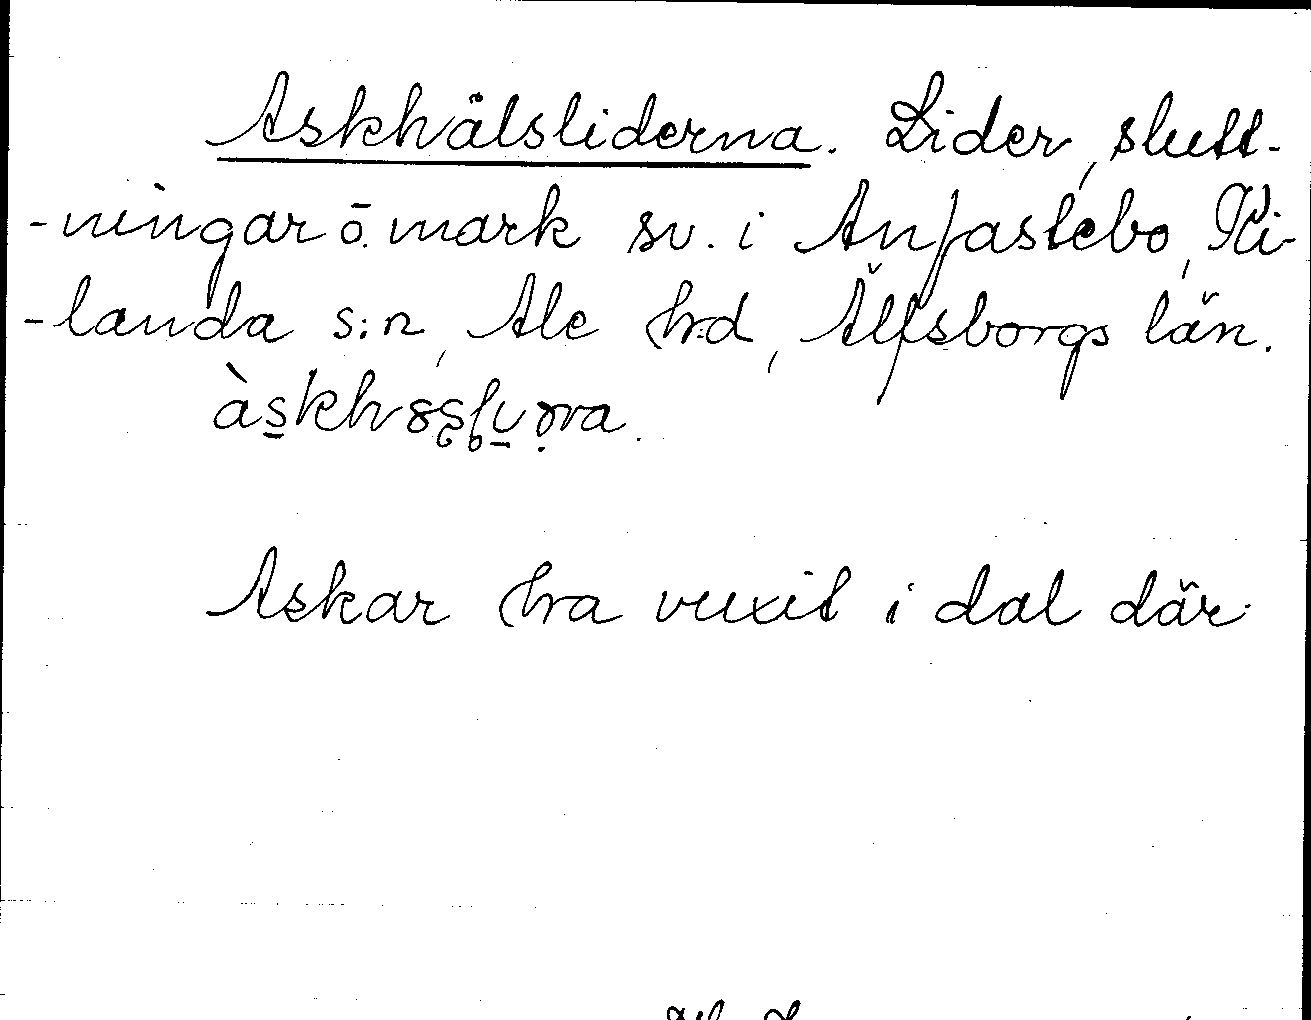 Askhälsliderna. Lider, slutt-
-ningar ō. mark sv. i Anfastebo, Ki-
-landa s:n, Ale hd, Älfsborgs län.
Askar ha vuxit i dal där